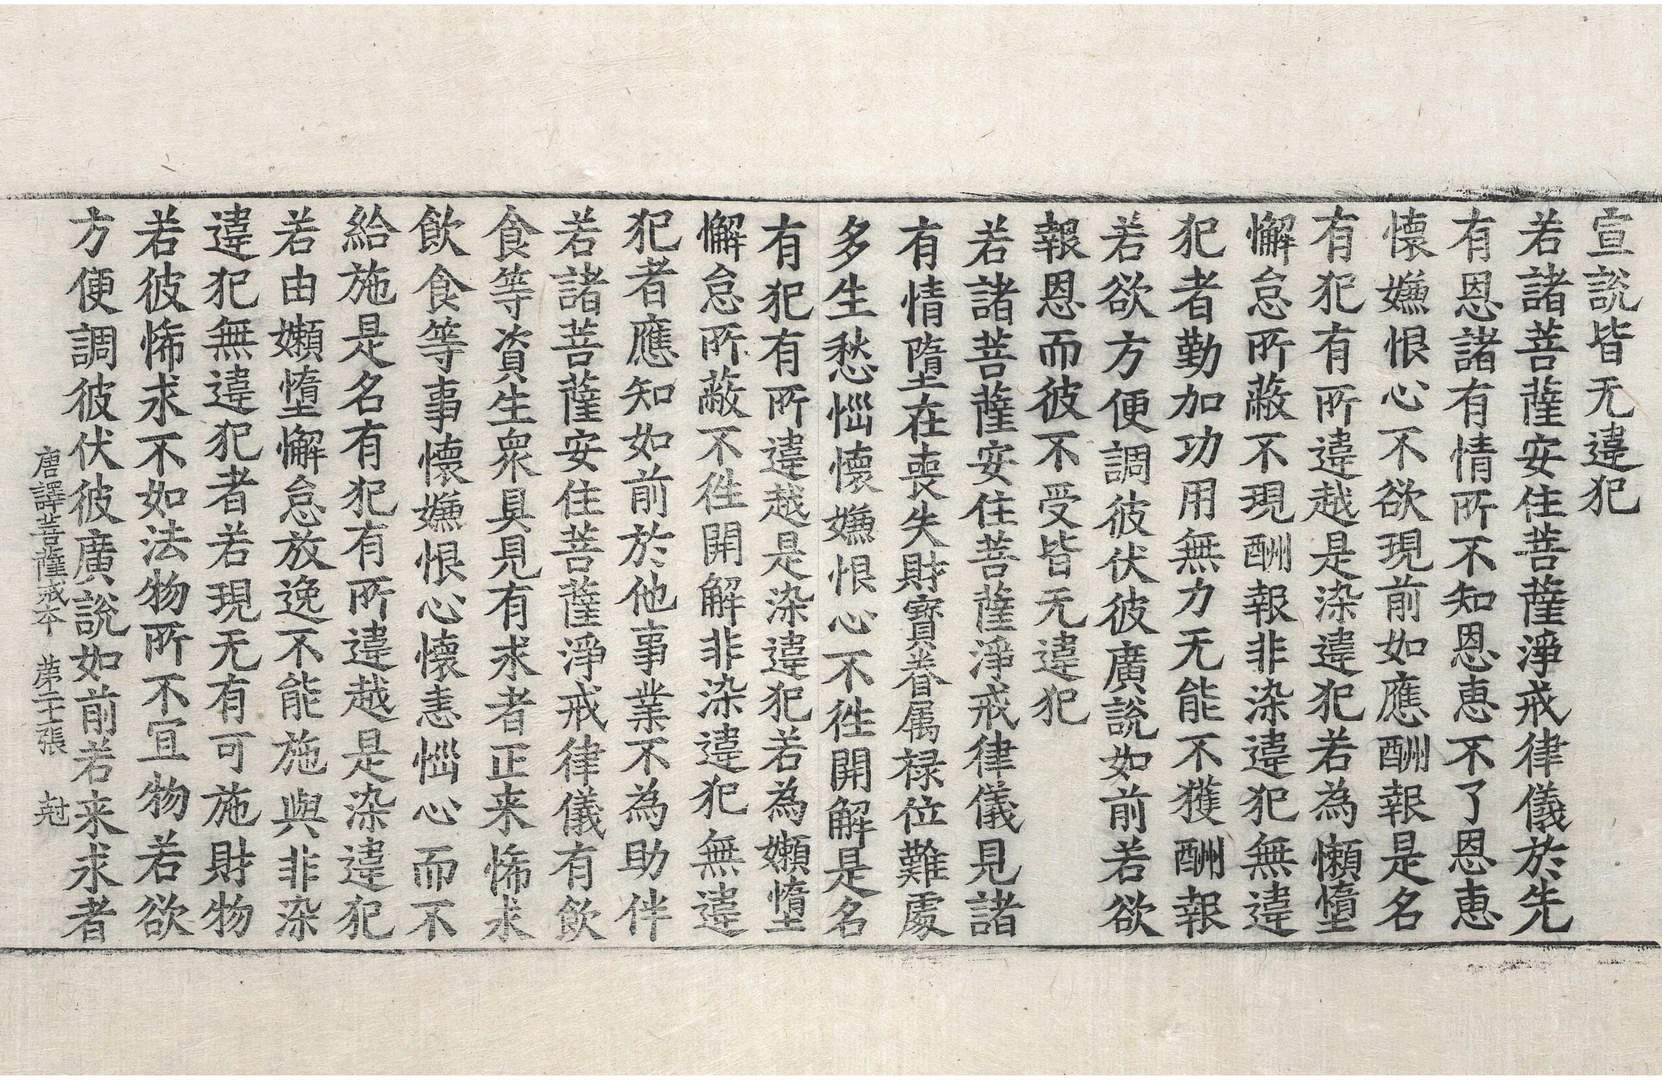 宣說皆无違犯
若諸菩薩安住菩薩淨戒律儀於先
有恩諸有情所不知恩恵不了恩恵
懷嫌恨心不欲現前如應酬報是名
有犯有所違越是染違犯若為懶墮
懈怠所蔽不現酬報非染違犯無違
犯者勤加功用無力无能不獲酬報
若欲方便調彼伏彼廣說如前若欲
報恩而彼不受皆无違犯
若諸菩薩安住菩薩淨戒律儀見諸
有情墮在喪失財寶眷属禄位難處
多生愁惱懷嫌恨心不徃開解是名
有犯有所違越是染違犯若為嬾墮
懈怠所蔽不徃開解非染違犯無違
犯者應知如前於他事業不為助伴
若諸菩薩安住菩薩淨戒律儀有飲
食等資生衆具見有求者正来悕求
飲食等事懷嫌恨心懷恚惱心而不
給施是名有犯有所違越是染違犯
若由嬾惰懈怠放逸不能施與非染
違犯無違犯者若現无有可施財物
若彼悕求不如法物所不宜物若欲
方便調彼伏彼廣說如前若来求者
唐譯菩薩戒本　苐二十張　尅